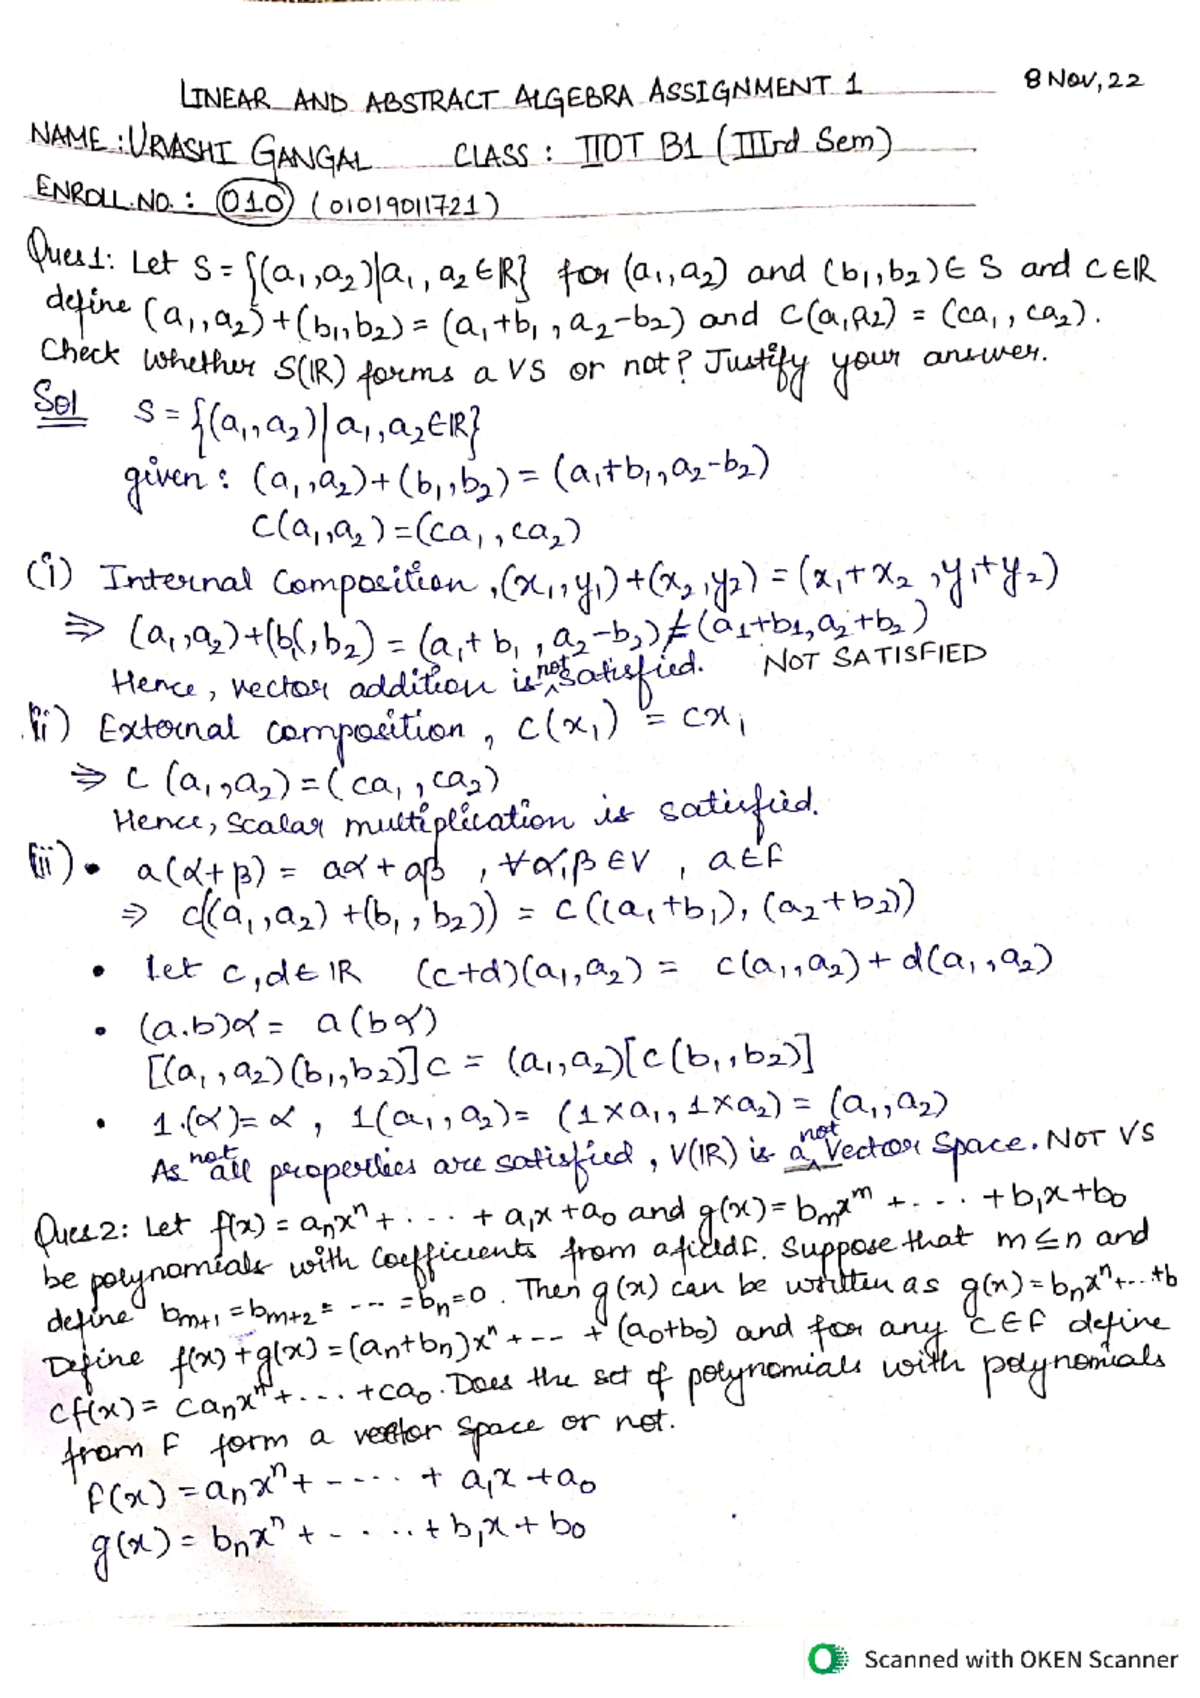 LINEAR AND ABSTRACT ALGEBRA ASSIGNMENT 1 8 Nov, 22
NAME : URVASHI GANGAL CLASS : IIOT B1 (IIIrd Sem)
ENROLL.NO. : 010 (01019011721)
Ques1: Let S = {(a₁,a₂)|a₁, a₂ ∈ IR} for (a₁,a₂) and (b₁,b₂) ∈ S and C ∈ IR
define (a₁,a₂)+(b₁,b₂) = (a₁+b₁, a₂-b₂) and C(a₁a₂) = (ca₁, ca₂).
Check whether S(IR) forms a VS or not? Justify your answer.
Sol S = {(a₁,a₂)|a₁,a₂ ∈ IR}
given : (a₁,a₂)+(b₁,b₂) = (a₁+b₁, a₂-b₂)
C(a₁,a₂) = (ca₁, ca₂)
(i) Internal Composition, (x₁,y₁)+(x₂,y₂) = (x₁+x₂, y₁+y₂)
⇒ (a₁,a₂)+(b₁,b₂) = (a₁+b₁, a₂-b₂) ≠ (a₁+b₁, a₂+b₂)
Hence, vector addition is not satisfied. NOT SATISFIED
(ii) External composition, c(x₁) = cx₁
⇒ c(a₁,a₂) = (ca₁, ca₂)
Hence, scalar multiplication is satisfied.
(iii) • a(α+β) = aα + aβ, ∀ α,β ∈ V, a ∈ F
⇒ c((a₁,a₂)+(b₁,b₂)) = c((a₁+b₁), (a₂+b₂))
• let c,d ∈ IR (c+d)(a₁,a₂) = c(a₁,a₂) + d(a₁,a₂)
• (a.b)α = a(bα)
[(a₁,a₂)(b₁,b₂)]c = (a₁,a₂)[c(b₁,b₂)]
• 1.(α) = α, 1(a₁,a₂) = (1×a₁, 1×a₂) = (a₁,a₂)
As not all properties are satisfied, V(IR) is a not Vector Space. NOT VS
Ques2: Let f(x) = aₙxⁿ + .... + a₁x + a₀ and g(x) = bₘxᵐ + .... + b₁x + b₀
be polynomials with coefficients from a field F. Suppose that m ≤ n and
define bₘ₊₁ = bₘ₊₂ = --- = bₙ = 0. Then g(x) can be written as g(x) = bₙxⁿ+...+b
Define f(x) + g(x) = (aₙ+bₙ)xⁿ + -- + (a₀+b₀) and for any C ∈ F define
cf(x) = caₙxⁿ + .... + ca₀. Does the set of polynomials with polynomials
from F form a vector space or not.
f(x) = aₙxⁿ + ----- + a₁x + a₀
g(x) = bₙxⁿ + ..... + b₁x + b₀
Scanned with OKEN Scanner